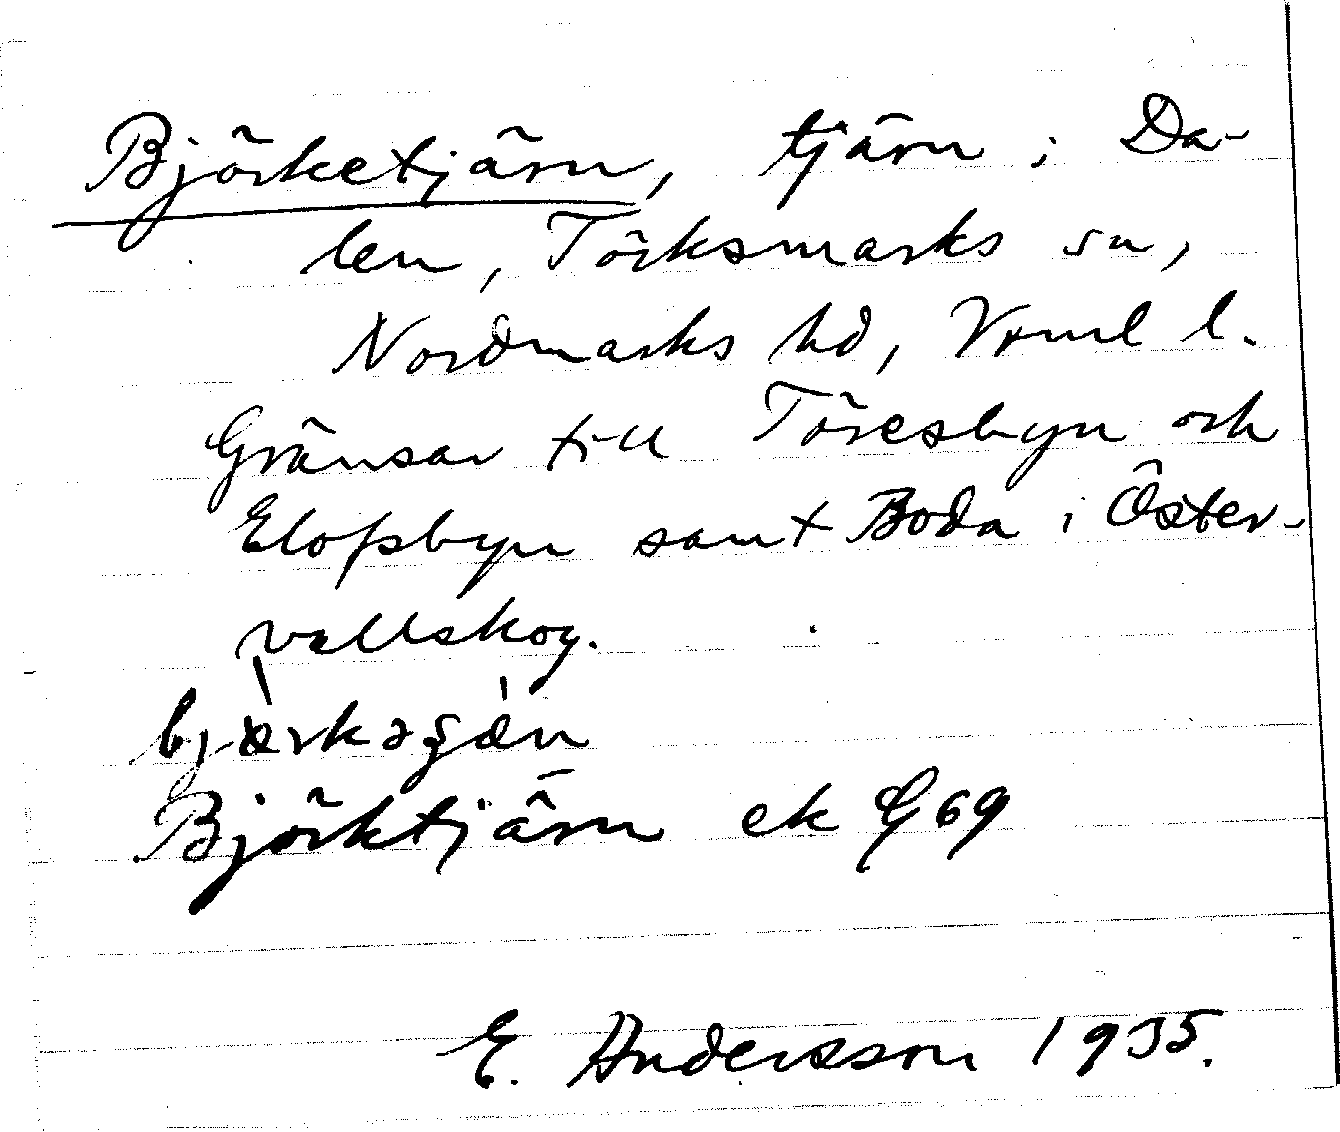 Björketjärn, tjärn i Da-
len, Törksmarks sn,
Nordmarks hd, Vrml l.
Gränsar till Töresbyn och
Elofsbyn samt Boda i Öster-
vallskog.
Björktjärn ek G69
E. Andersson 1935.